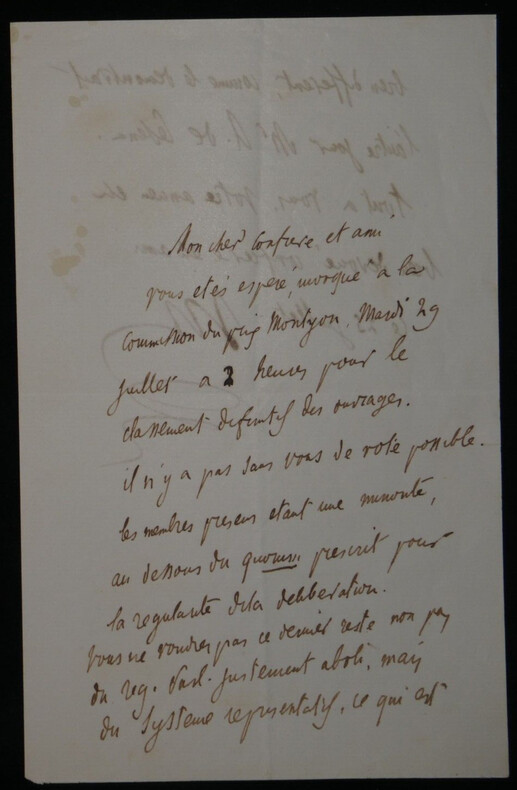 Mon cher Confrere et ami
vous etes esperé, invoqué à la
Commission du prix Montyon, Mardi 29
juillet a 2 heures pour le
classement definitif des ouvrages.
il n'y a pas sans vous de vote possible.
les membres presens etant une minorité,
au dessous du quorum prescrit pour
la regularité de la deliberation.
Vous ne voudrez pas ce dernier reste non
du reg. Parl. justement aboli, mais
du Systeme representatif, ce qui est